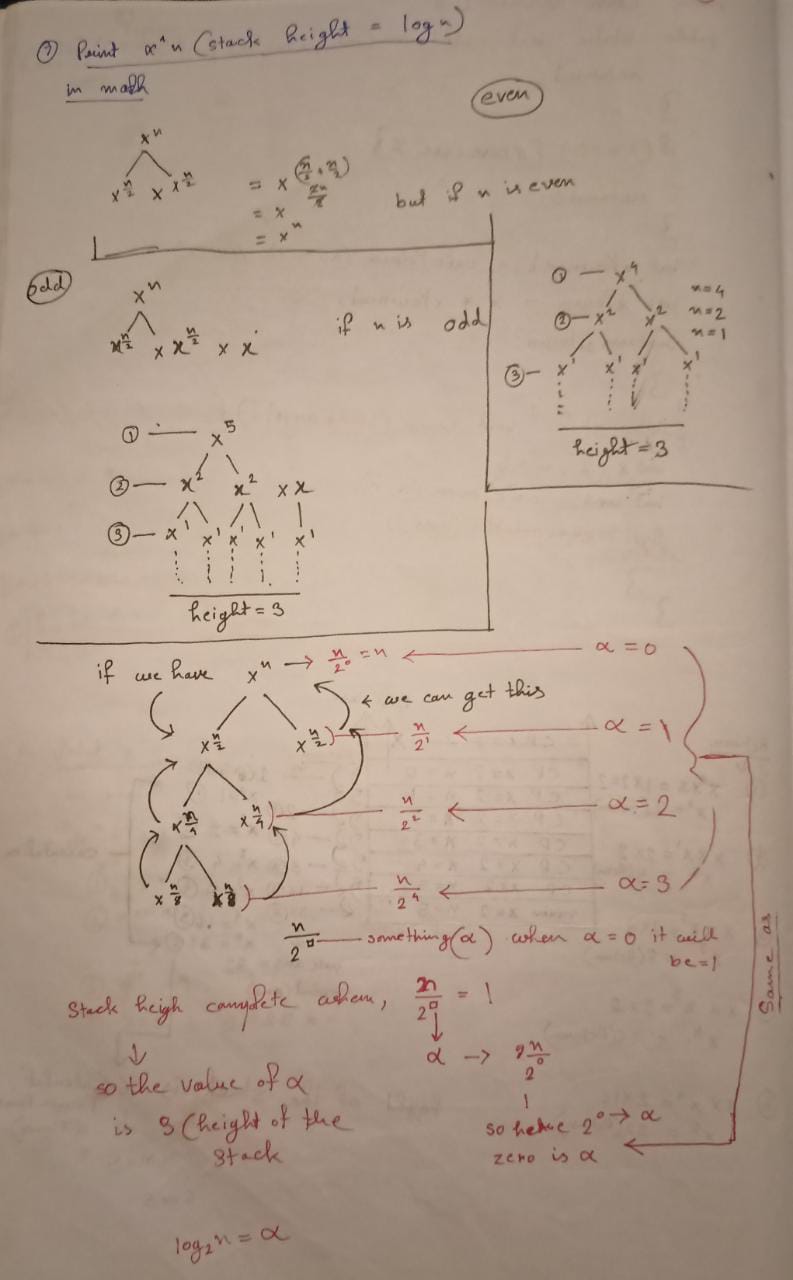 ⑦ Print x^n (stack height = logn)
in math
even
xⁿ
x^n/2 x x^n/2 = x^(n/2 + n/2)
= x^2n/2
= xⁿ
but if n is even
odd
xⁿ
x^n/2 x x^n/2 x x
if n is odd
① — x⁴
② — x² x²
③ — x¹ x¹ x¹ x¹
n=4
n=2
n=1
height = 3
① — x⁵
② — x² x² x x
③ — x¹ x¹ x¹ x¹ x¹
height = 3
if we have xⁿ → n/2⁰ = n ← α = 0
← we can get this
x^n/2 x^n/2) — n/2¹ ← α = 1
x^n/4 x^n/4) — n/2² ← α = 2
x^n/8 x^n/8) — n/2⁴ ← α = 3
n/2^□ — something(α) when α = 0 it will
be = 1
Same as
Stack heigh complete when, n/2^□ = 1
↓
α → n/2⁰
so the value of α
is 3 (height of the
stack
so 2⁰ → α
zero is α
log₂n = α